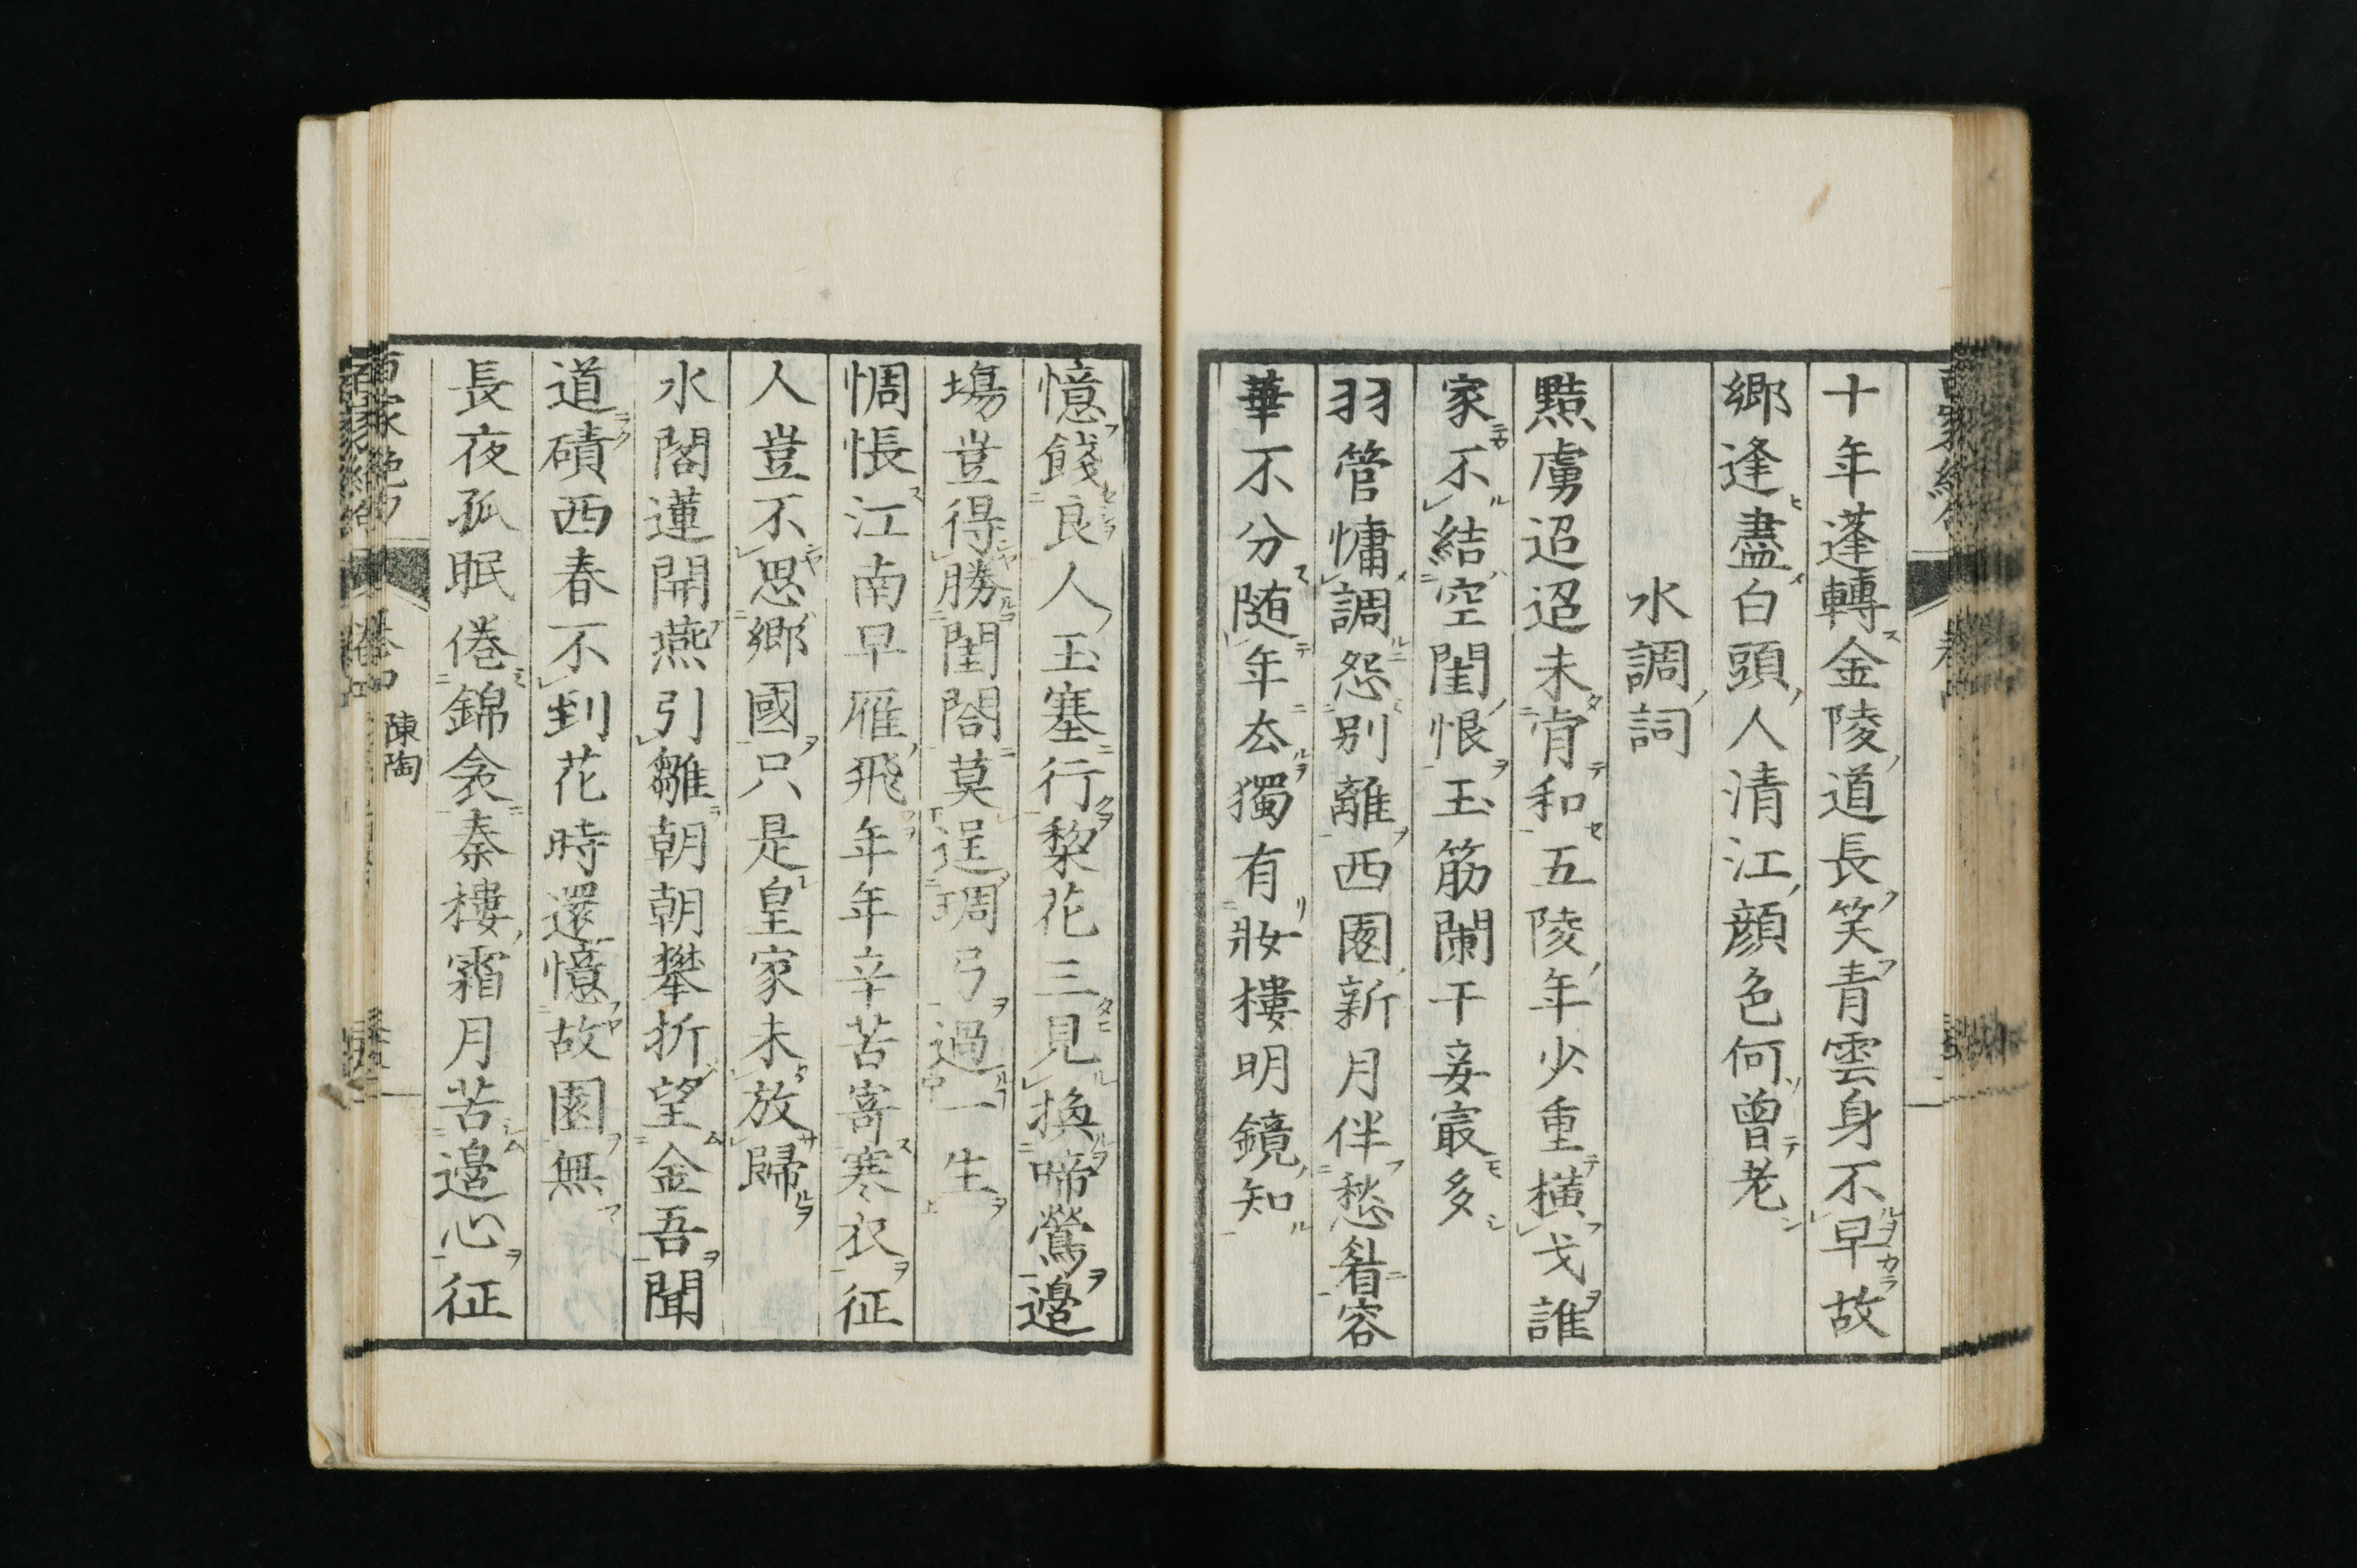 十年蓬轉金陵道長笑青雲身不早故
郷逢盡白頭人清江顔色何曾老
水調詞
黠虜迢迢未肯和五陵年少重横戈誰
家不結空閨恨玉筋闌干妾冣多
羽管慵調怨别離西園新月伴愁眉容
華不分随年去獨有妝樓明鏡知
憶餞良人玉塞行梨花三見換啼鶯邉
塲豈得勝閨閤莫逞琱弓過一生
惆悵江南早雁飛年年辛苦寄寒衣征
人豈不思郷國只是皇家未放歸
水閣蓮開燕引雛朝朝攀折望金吾聞
道磧西春不到花時還憶故園無
長夜孤眠倦錦衾秦樓霜月苦邉心征
陳陶